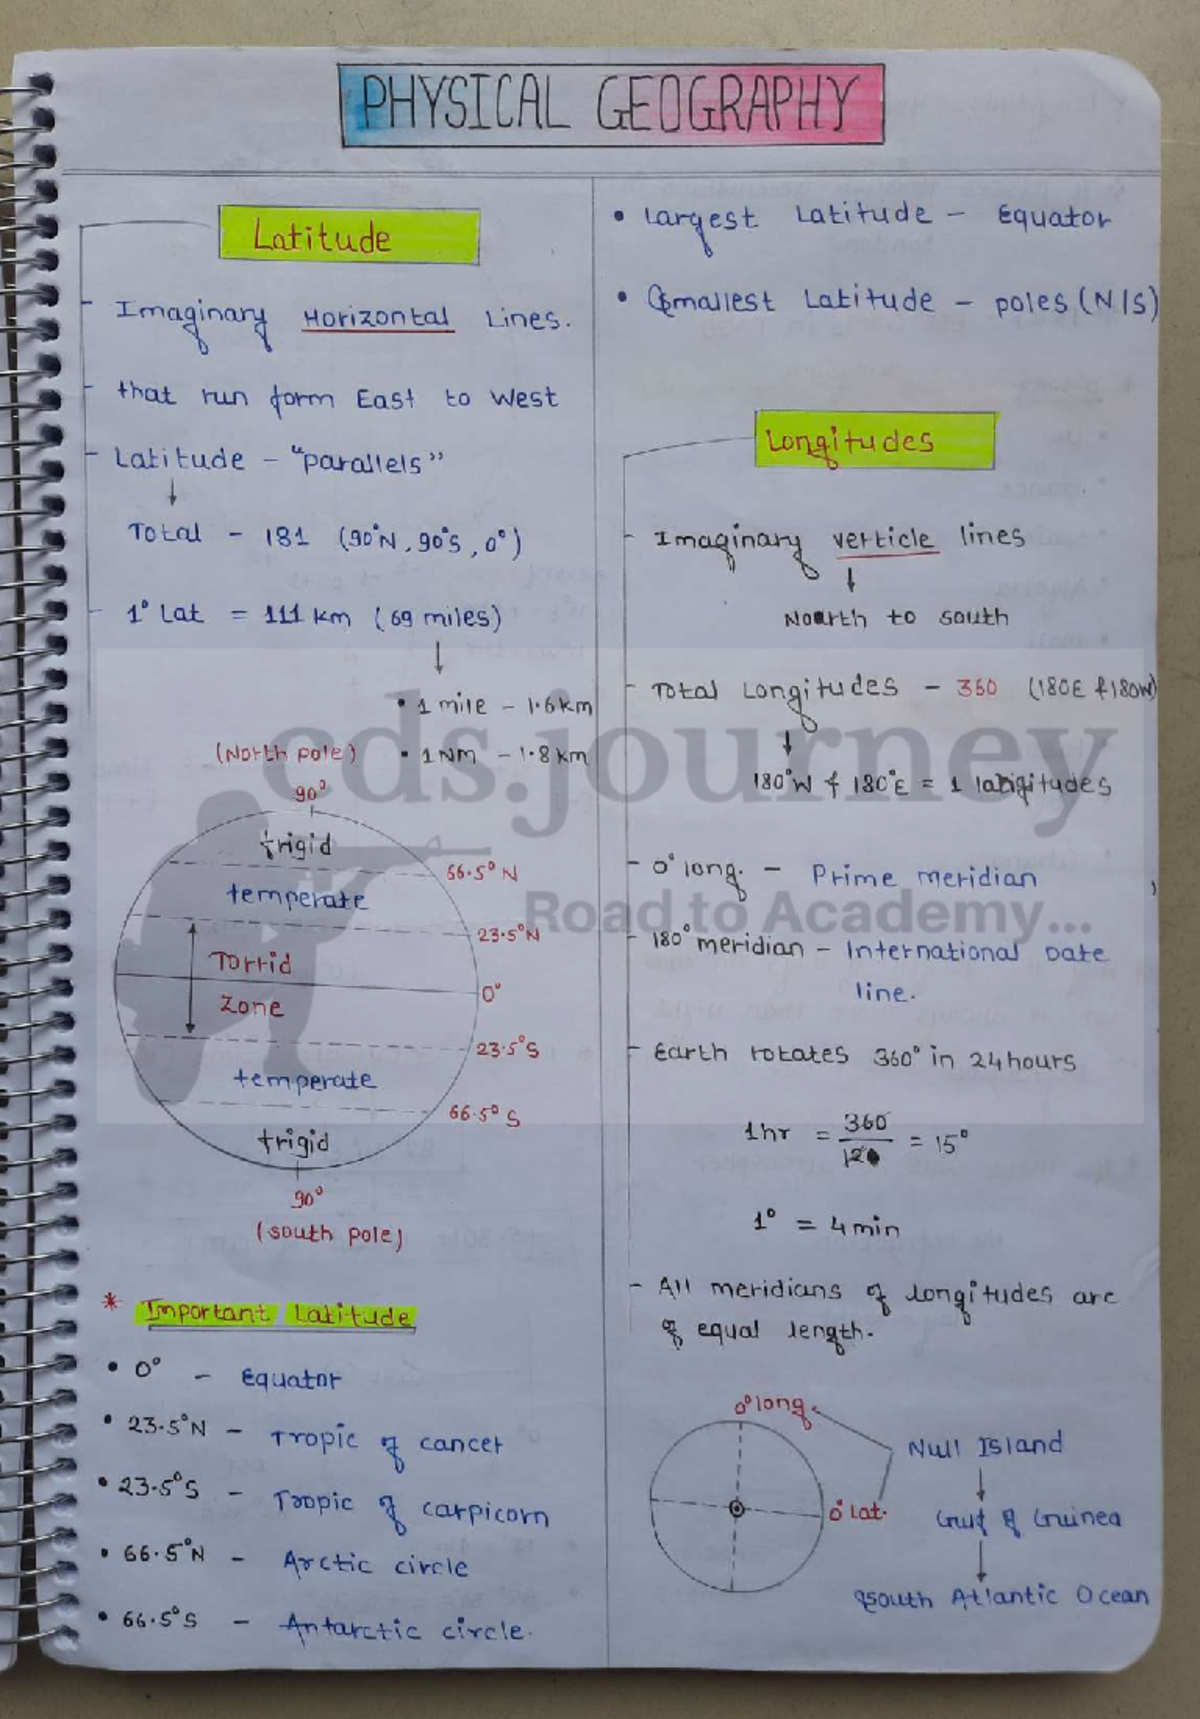 PHYSICAL GEOGRAPHY
Latitude
- Imaginary Horizontal Lines.
- that run form East to West
- Latitude - "parallels"
↓
Total - 181 (90°N, 90°S, 0°)
- 1° Lat = 111 km (69 miles)
↓
• 1 mile - 1.6 km
• 1 NM - 1.8 km
(North pole)
90°
frigid
66.5° N
temperate
23.5° N
Torrid
0°
Zone
23.5° S
temperate
66.5° S
frigid
90°
(south pole)
* Important Latitude
• 0° - Equator
• 23.5°N - Tropic of cancer
• 23.5°S - Tropic of carpicorn
• 66.5°N - Arctic circle
• 66.5°S - Antarctic circle.
• Largest Latitude - Equator
• Smallest Latitude - poles (N/S)
Longitudes
- Imaginary verticle lines
↓
North to south
- Total Longitudes - 360 (180E & 180W)
↓
180°W & 180°E = 1 longitudes
- 0° long. - Prime meridian
- 180° meridian - International Date
line.
- Earth rotates 360° in 24 hours
1hr = 360/24 = 15°
1° = 4 min
- All meridians of longitudes are
of equal length.
0° long.
0° lat.
Null Island
↓
Gulf of Guinea
↓
South Atlantic Ocean
cds.journey
Road to Academy...